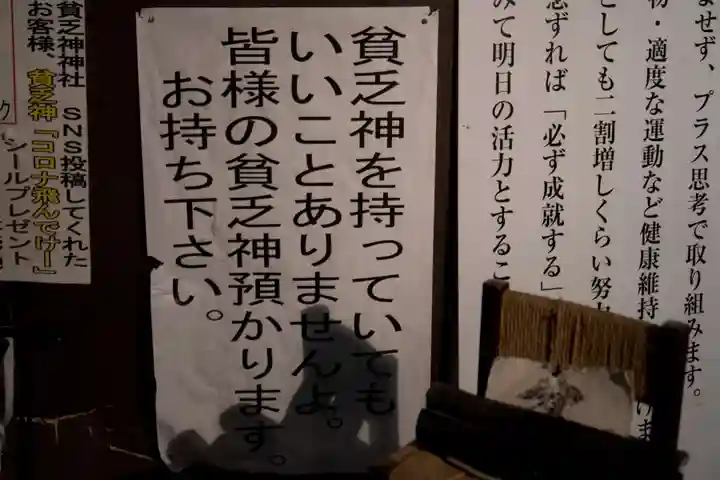 ませず、プラス思考で取り組みます。
物・適度な運動など健康維持
としても二割増しくらい努力
念ずれば「必ず成就する」
みて明日の活力とするこ
貧乏神を持っていても
いいことありませんよ。
皆様の貧乏神預かります。
お持ち下さい。
貧乏神神社 SNS投稿してくれた
お客様、貧乏神『コロナ飛んでけー』
シールプレゼント